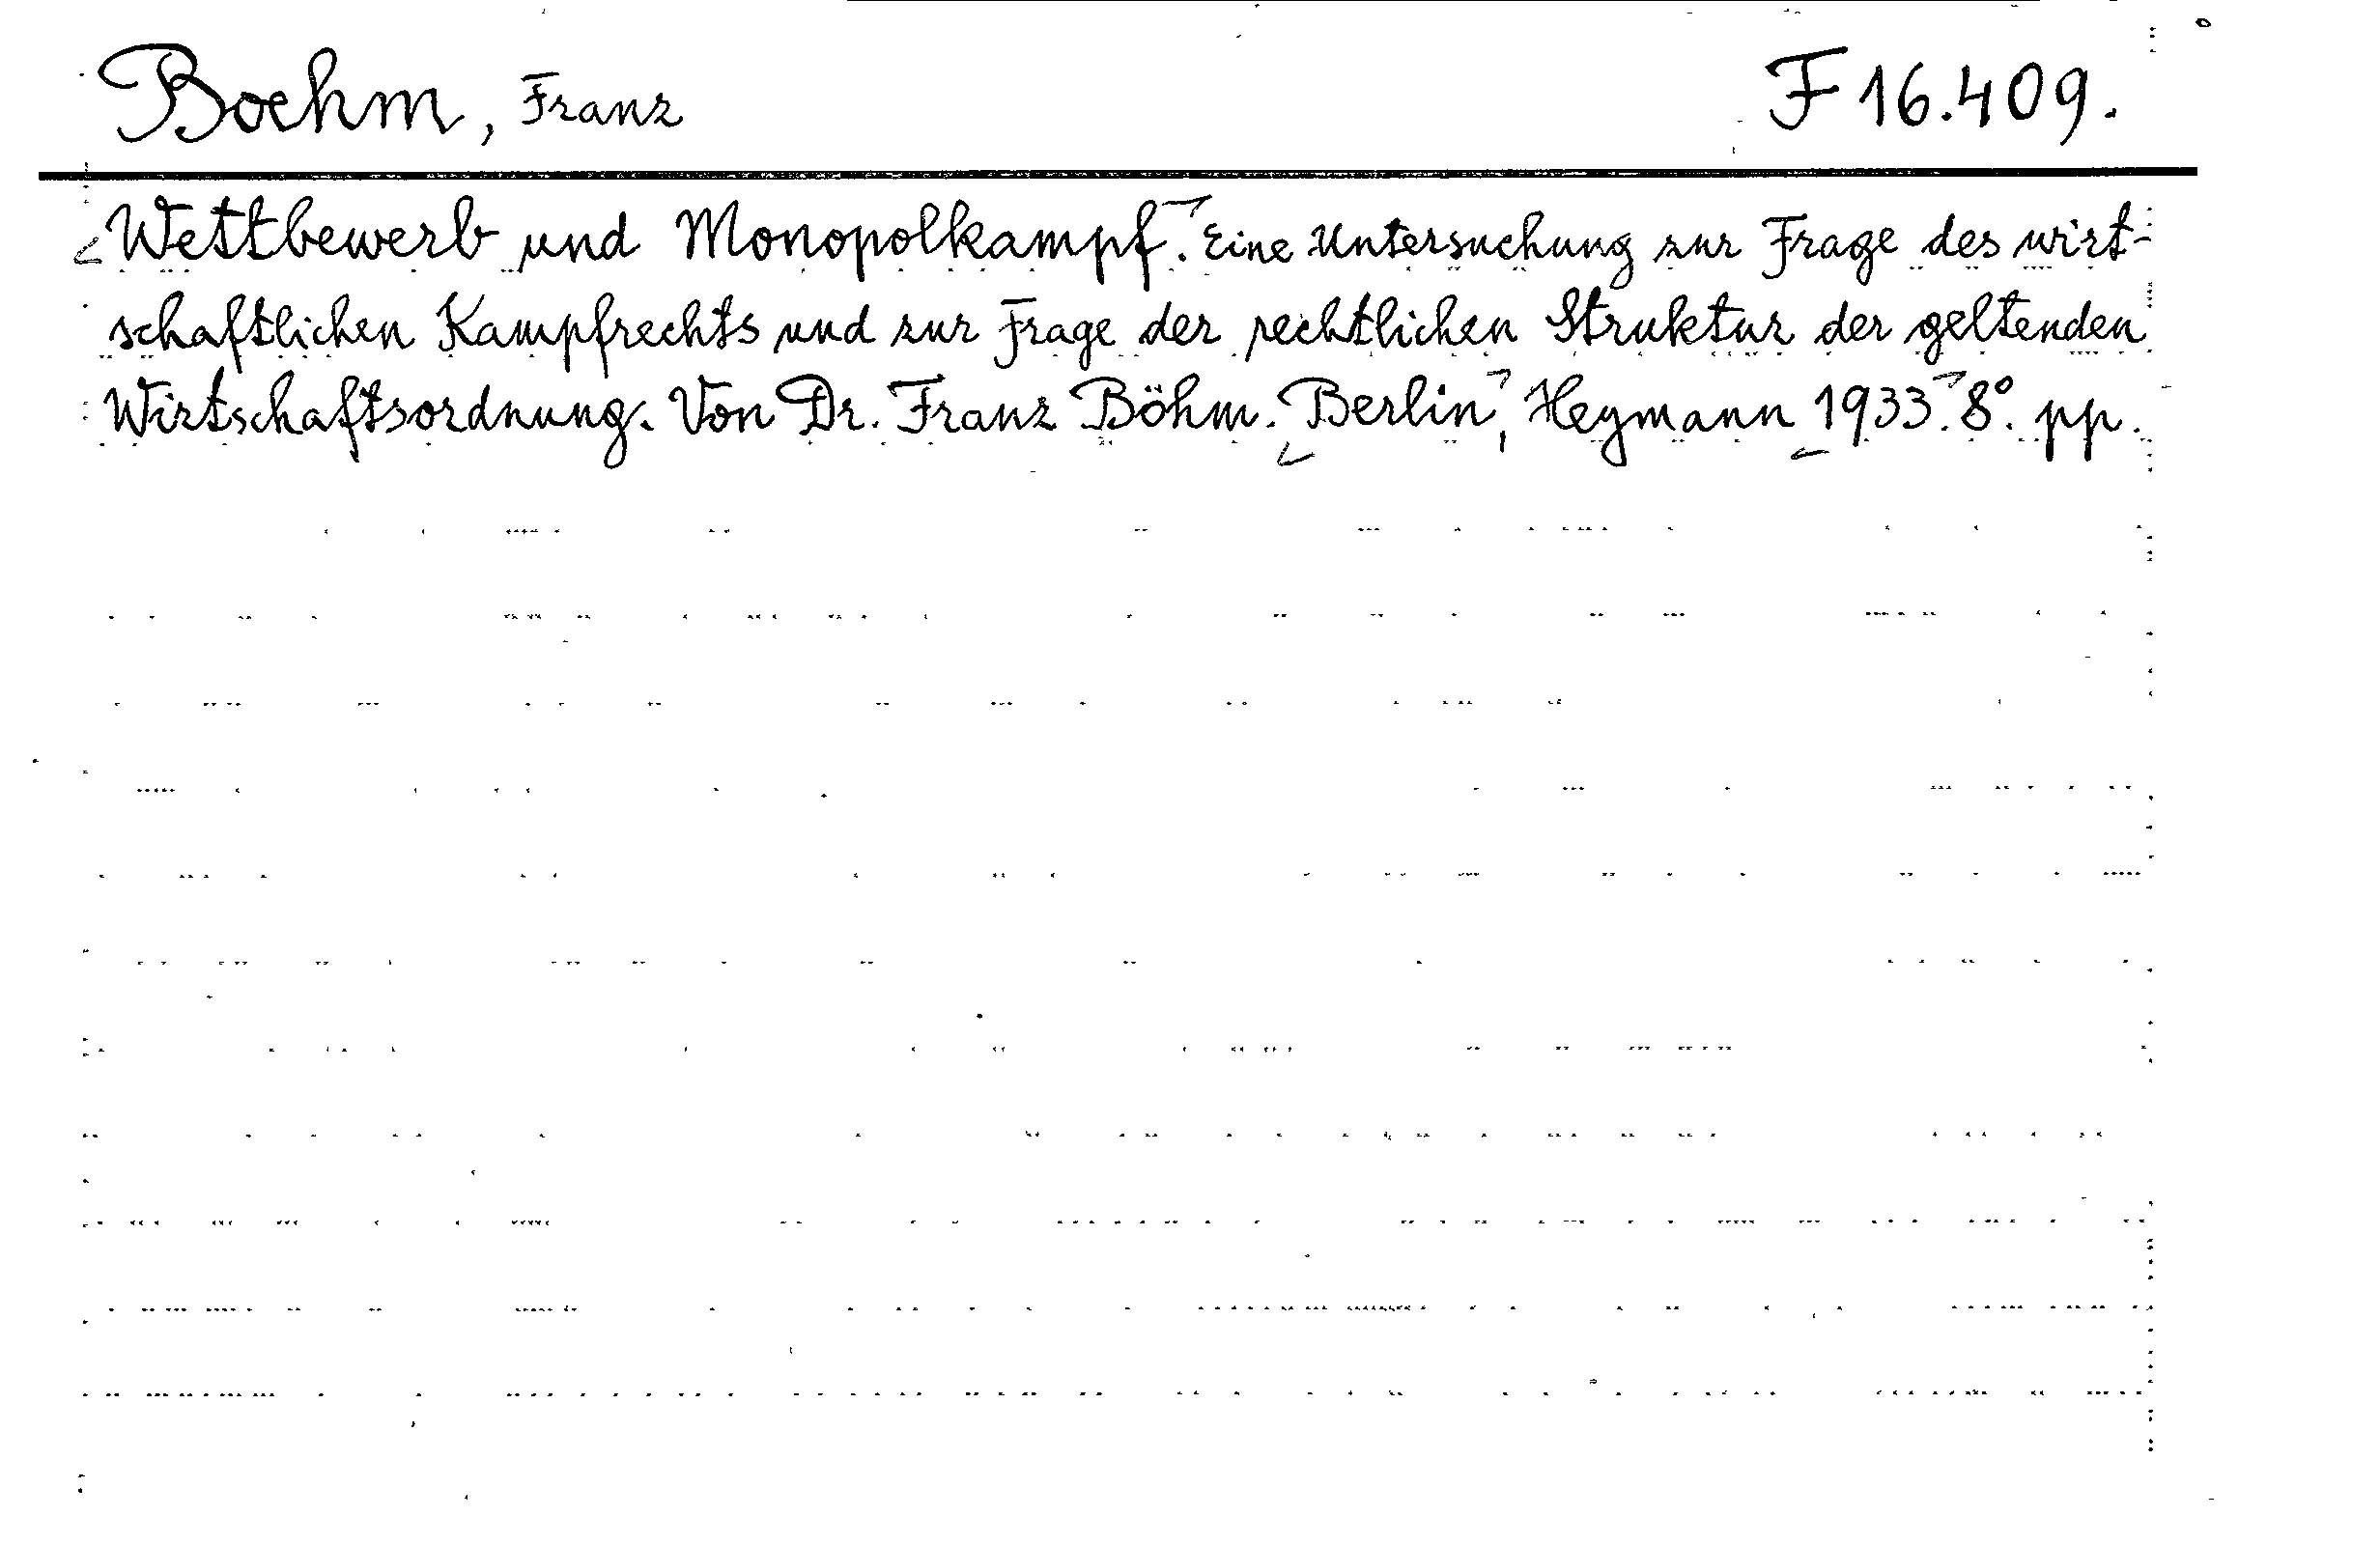 Boehm, Franz F 16.409.
Wettbewerb und Monopolkampf. Eine Untersuchung zur Frage des wirt-
schaftlichen Kampfrechts und zur Frage der rechtlichen Struktur der geltenden
Wirtschaftsordnung. Von Dr. Franz Böhm. Berlin, Heymann 1933. 8°. pp.